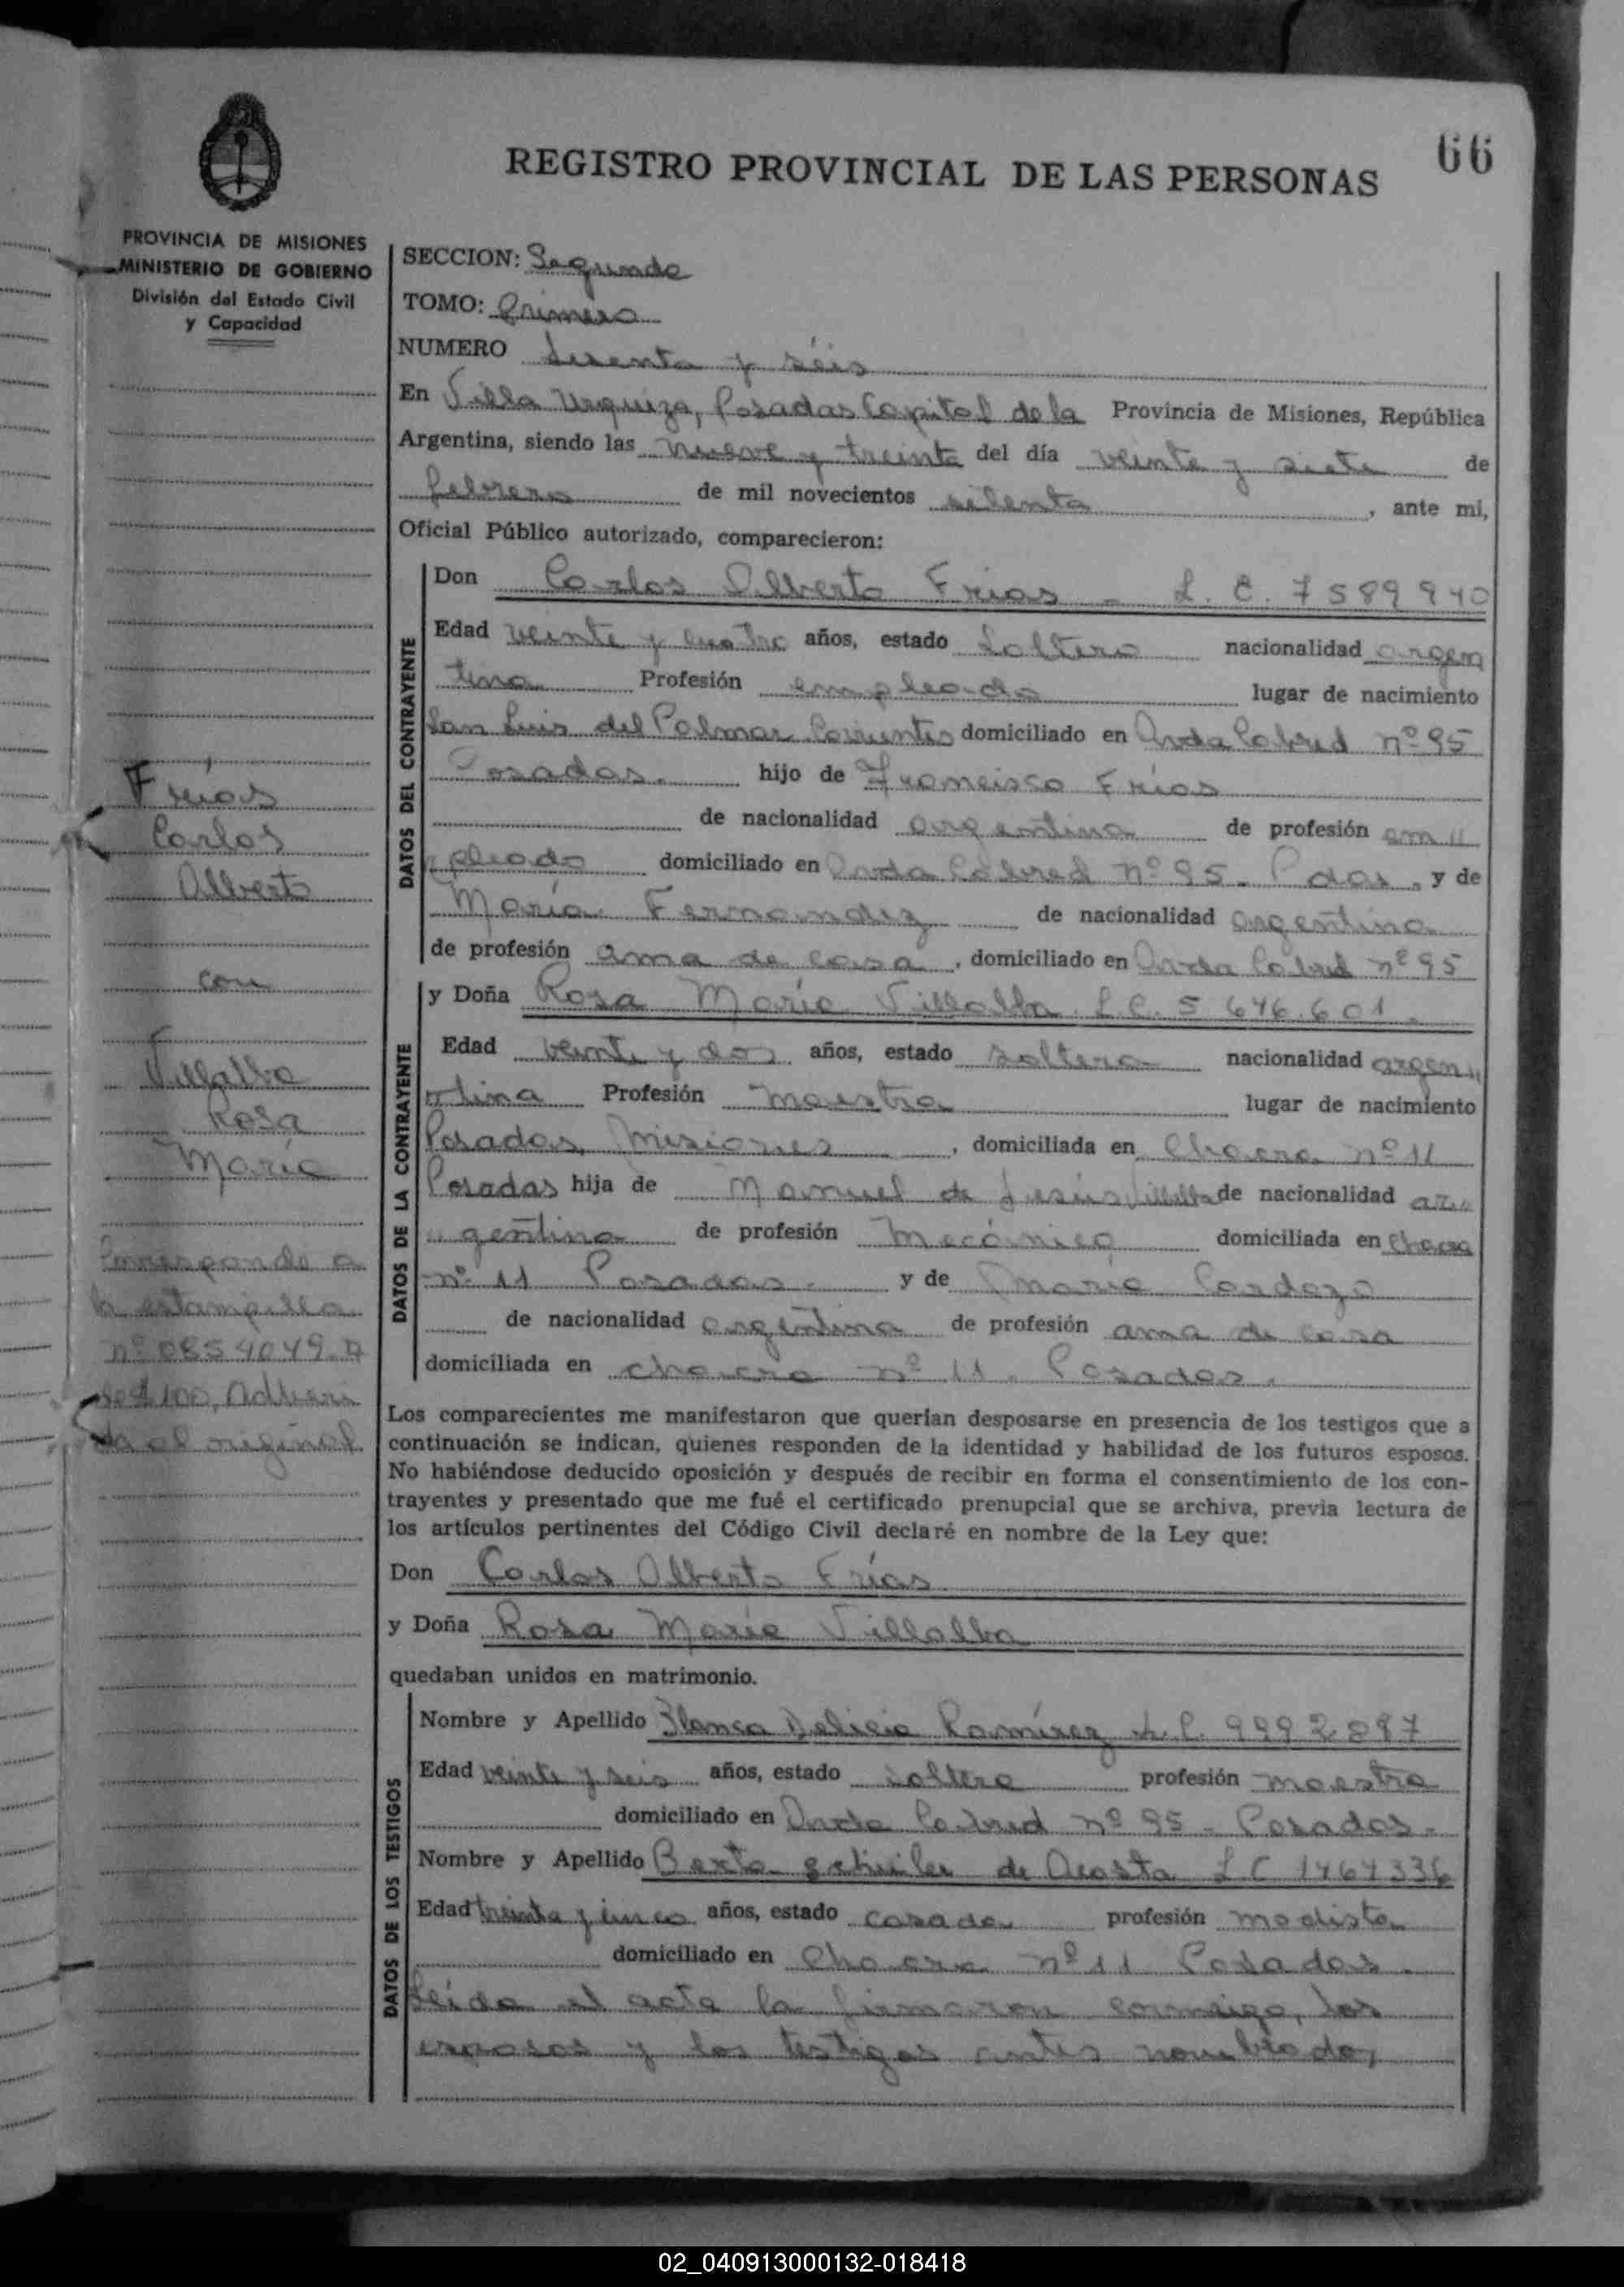 66
REGISTRO PROVINCIAL DE LAS PERSONAS
PROVINCIA DE MISIONES
MINISTERIO DE GOBIERNO
División del Estado Civil
y Capacidad
Frías
Carlos
Alberto
con
Villalba
Rosa
María
Corresponde a
la estampilla
nº 0854049.A
de $ 100, Adheri
da al original
SECCION: Segunda
TOMO: Primero
NUMERO Sesenta y séis
En Villa Urquiza, Posadas Capital de la Provincia de Misiones, República
Argentina, siendo las nueve y treinta del día veinte y siete de
febrero de mil novecientos setenta, ante mi,
Oficial Público autorizado, comparecieron:
DATOS DEL CONTRAYENTE
Don Carlos Alberto Frias - L. E. 7589940
Edad veinte y cuatro años, estado Soltero nacionalidad argen
tina Profesión empleado lugar de nacimiento
San Luis del Palmar Corrientes domiciliado en Avda Cabred nº 95
Posadas. hijo de Francisco Frías
de nacionalidad argentina de profesión em "
pleado domiciliado en Avda Cabred nº 95. Pdas, y de
María Fernandez de nacionalidad argentina
de profesión ama de casa, domiciliado en Avda Cabred nº 95
DATOS DE LA CONTRAYENTE
y Doña Rosa María Villalba L.C. 5 646.601.
Edad veinte y dos años, estado soltera nacionalidad argen "
tina Profesión maestra lugar de nacimiento
Posadas, Misiones, domiciliada en Chacra nº 11
Posadas hija de Manuel de Jesús Villalba de nacionalidad ar "
" gentina de profesión Mecánico domiciliada en Chacra
nº 11 Posadas. y de María Cardozo
de nacionalidad argentina de profesión ama de casa
domiciliada en chacra nº 11. Posadas.
Los comparecientes me manifestaron que querían desposarse en presencia de los testigos que a
continuación se indican, quienes responden de la identidad y habilidad de los futuros esposos.
No habiéndose deducido oposición y después de recibir en forma el consentimiento de los con-
trayentes y presentado que me fué el certificado prenupcial que se archiva, previa lectura de
los artículos pertinentes del Código Civil declaré en nombre de la Ley que:
Don Carlos Alberto Frías
y Doña Rosa María Villalba
quedaban unidos en matrimonio.
DATOS DE LOS TESTIGOS
Nombre y Apellido Blanca Delicia Ramírez L.C. 9992897
Edad veinte y seis años, estado soltera profesión maestra
domiciliado en Avda Cabred nº 95 - Posadas.
Nombre y Apellido Berta de Acosta L.C 1767336
Edad treinta y cinco años, estado casada profesión modista
domiciliado en Chacra nº 11 Posadas.
Leída el acta la firmaron conmigo, los
esposos y los testigos antes nombrados
02_040913000132-018418